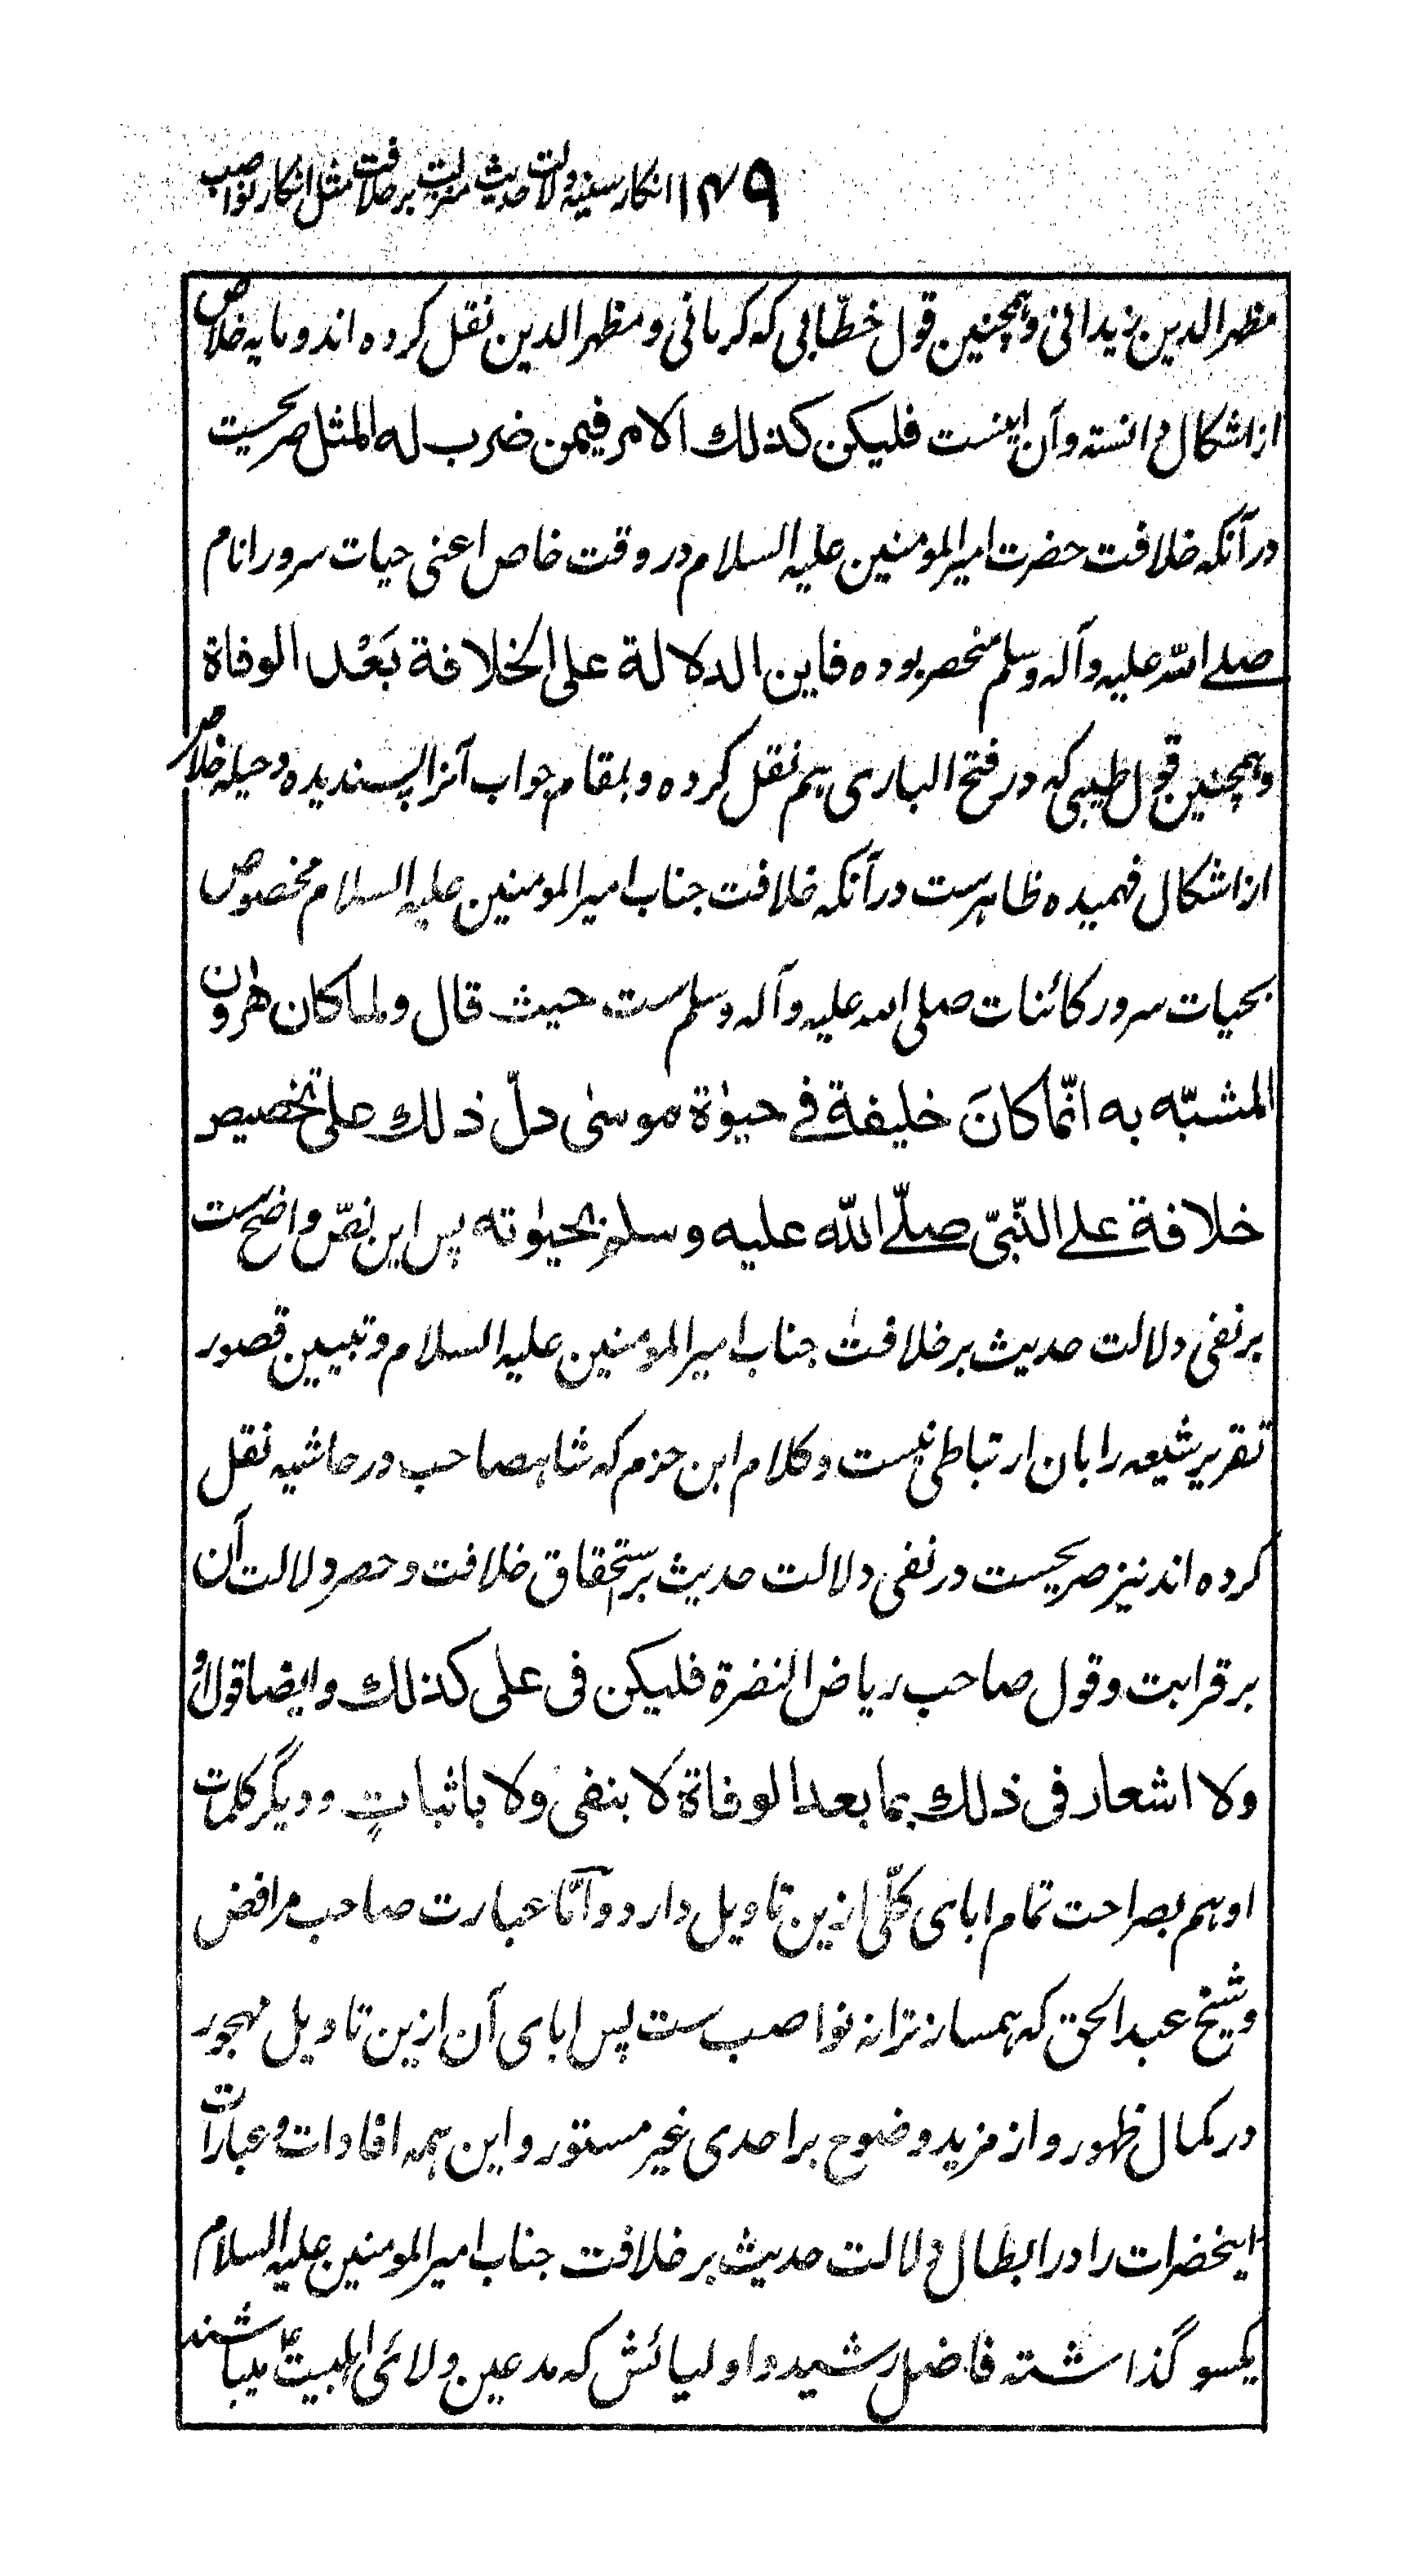 ۱۴۹ انکار سنیه دلالت حدیث منزلت بر خلافت مثل انکار نواصب
مظهر الدین زیدانی و همچنین قول خطّابی که کرمانی و مظهر الدین نقل کرده اند و مایه خلاص
از اشکال دانسته و آن اینست فلیکن کذلك الامر فیمن ضرب له المثل صریحست
در آنکه خلافت حضرت امیر المومنین علیه السلام در وقت خاص اعنی حیات سرور انام
صلے الله علیه و آله و سلم منحصر بوده فاین الدلالة علی الخلافة بَعْد الوفاة
و همچنین قول طیبی که در فتح الباری هم نقل کرده و بمقام جواب آنرا پسندیده و حیله خلاص
از اشکال فهمیده ظاهرست در آنکه خلافت جناب امیر المومنین علیه السلام مخصوص
بحیات سرور کائنات صلی الله علیه و آله و سلم ست حیث قال ولما کان هٰرون
المشبّه به انّما کانَ خلیفة فے حیوٰة موسیٰ دلّ ذلك علی تخصیص
خلافة علے النّبیّ صلّے اللّٰه علیه وسلم بحیوٰته پس این نصّ واضح ست
بر نفی دلالت حدیث بر خلافت جناب امیر المومنین علیه السلام و تبیین قصور
تقریر شیعه را بان ارتباطی نیست و کلام ابن حزم که شاهصاحب در حاشیه نقل
کرده اند نیز صریحست در نفی دلالت حدیث بر استحقاق خلافت و حصر دلالت آن
بر قرابت و قول صاحب ریاض النضرة فلیکن فی علی کذلك و ایضا قول او
ولا اشعار فی ذلك بما بعد الوفاة لا بنفی ولا باثباتٍ و دیگر کلمات
او هم بصراحت تمام ابای کلّی ازین تاویل دارد و امّا عبارت صاحب مرافض
و شیخ عبد الحق که همساز ترانه نواصب ست پس ابای آن ازین تاویل مهجور
در کمال ظهور و از مزید وضوح بر احدی غیر مستور و این همه افادات و عبارات
اینحضرات را در ابطال دلالت حدیث بر خلافت جناب امیر المومنین علیه السلام
یکسو گذاشته فاضل رشید و اولیائش که مدعین ولائی اهلبیتؑ میباشند